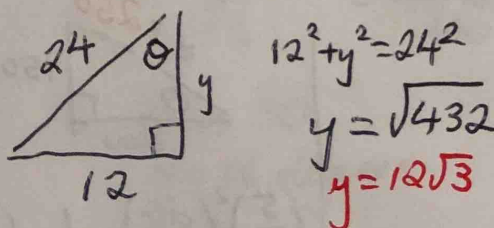 24
θ
y
12
12²+y²=24²
y=√432
y=12√3